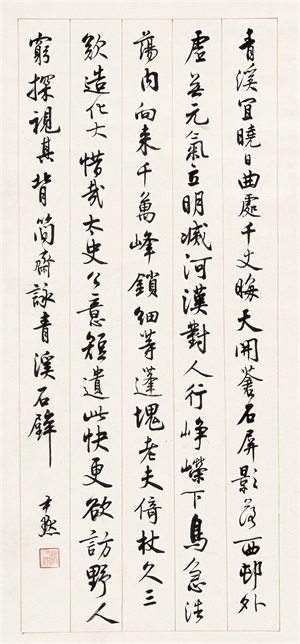 青溪宜曉日曲處千丈晦天開蒼石屏影落西邨外
虛無元氣立明滅河漢對人行崢嶸下鳥急浩
蕩內向来千萬峰鎖細等蓬塊老夫倚杖久三
歎造化大惜哉太史公意短遺此快更欲訪野人
窮探視其背簡齋詠青溪石壁
尹默